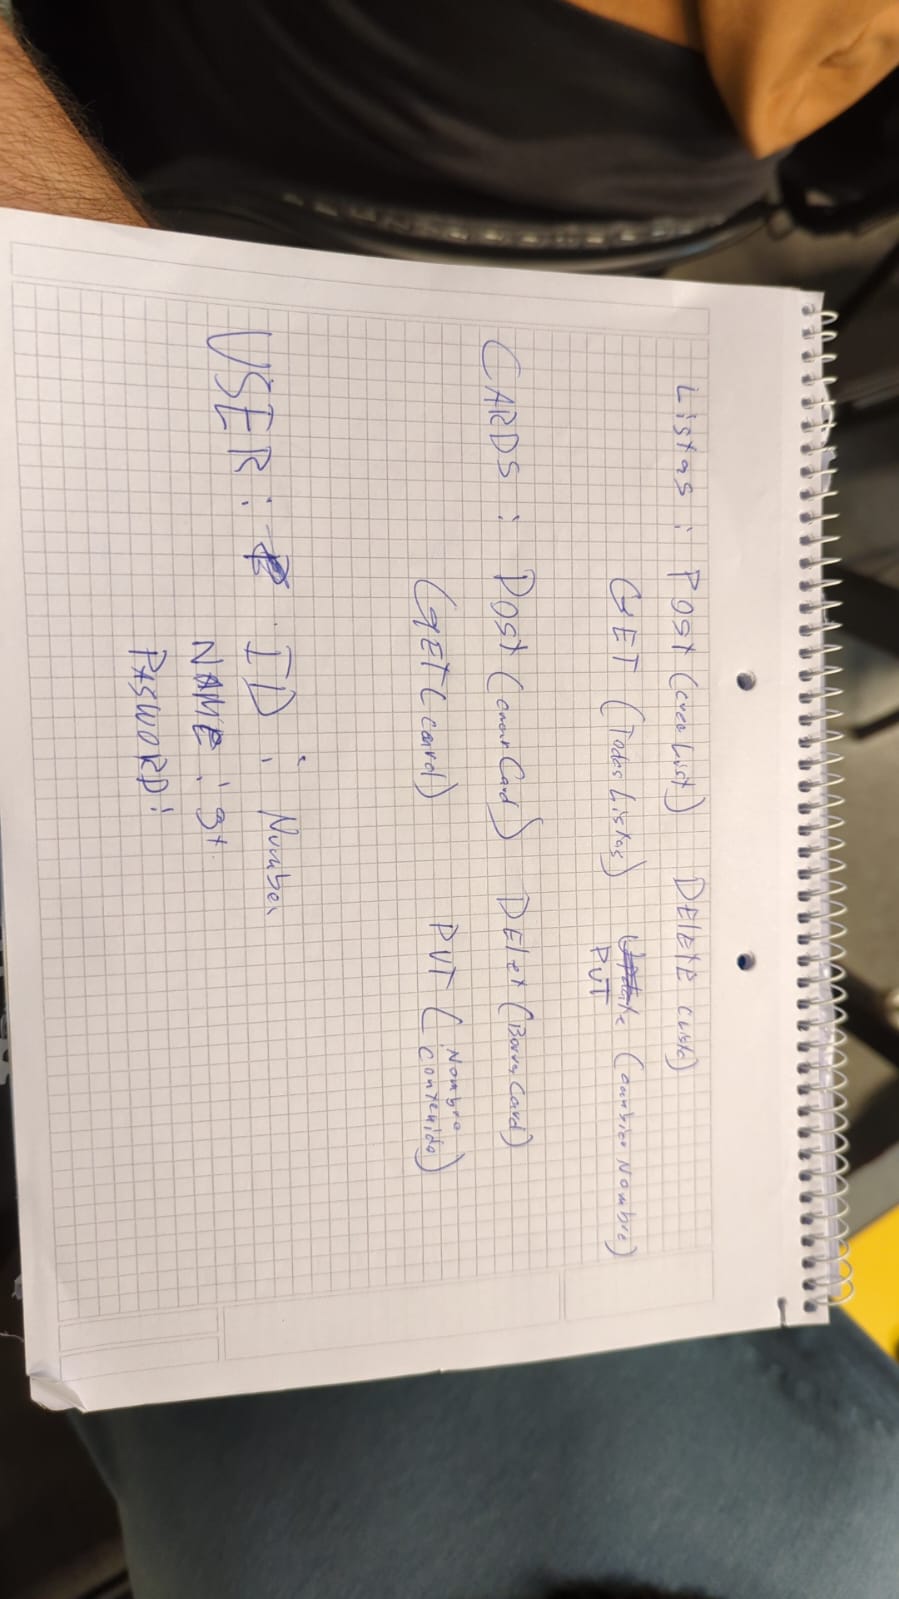 Listas : POST (crea List) DELETE (Lista)
GET (Todas Listas) PUT (cambiar Nombre)
CARDS : POST (crear Card) DELET (Borrar Card)
GET (card) PUT (Nombre
contenido)
USER : ID : Number
NAME : st.
PASWORD :